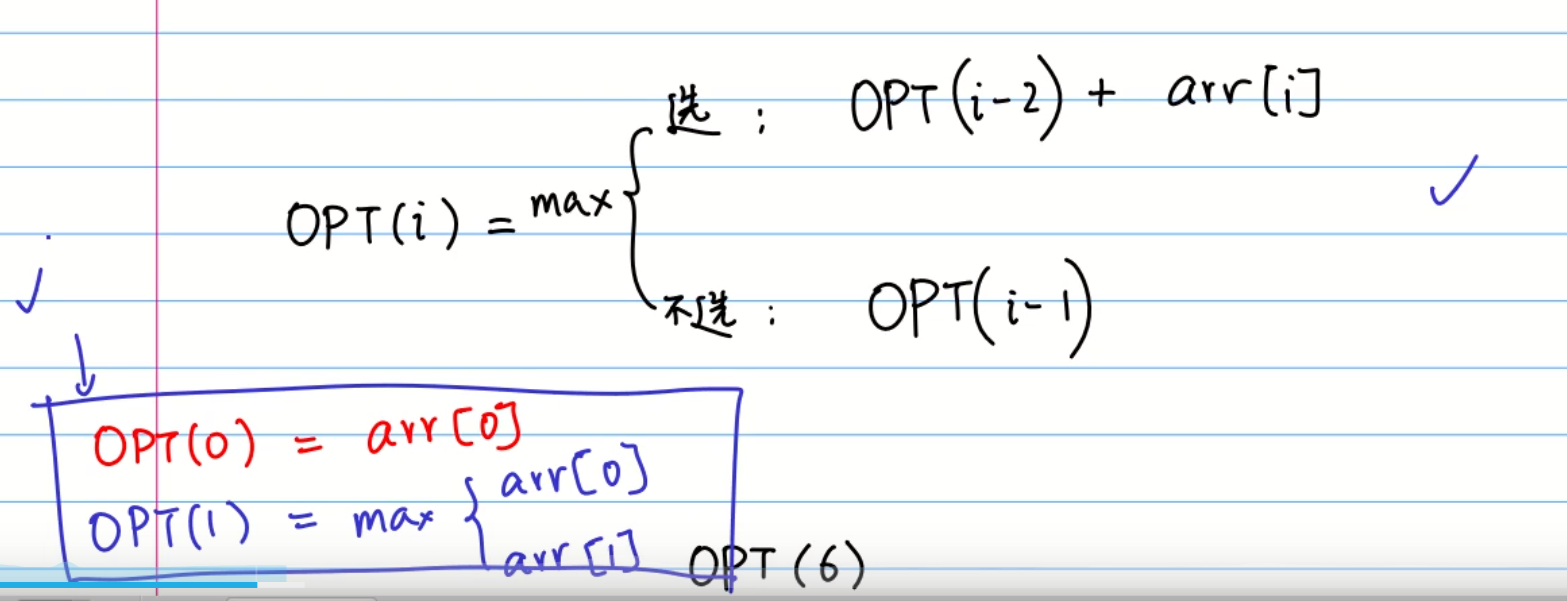 选： OPT(i-2) + arr[i]
OPT(i) = max {
不选： OPT(i-1)
OPT(0) = arr[0]
OPT(1) = max { arr[0]
arr[1]
OPT(6)